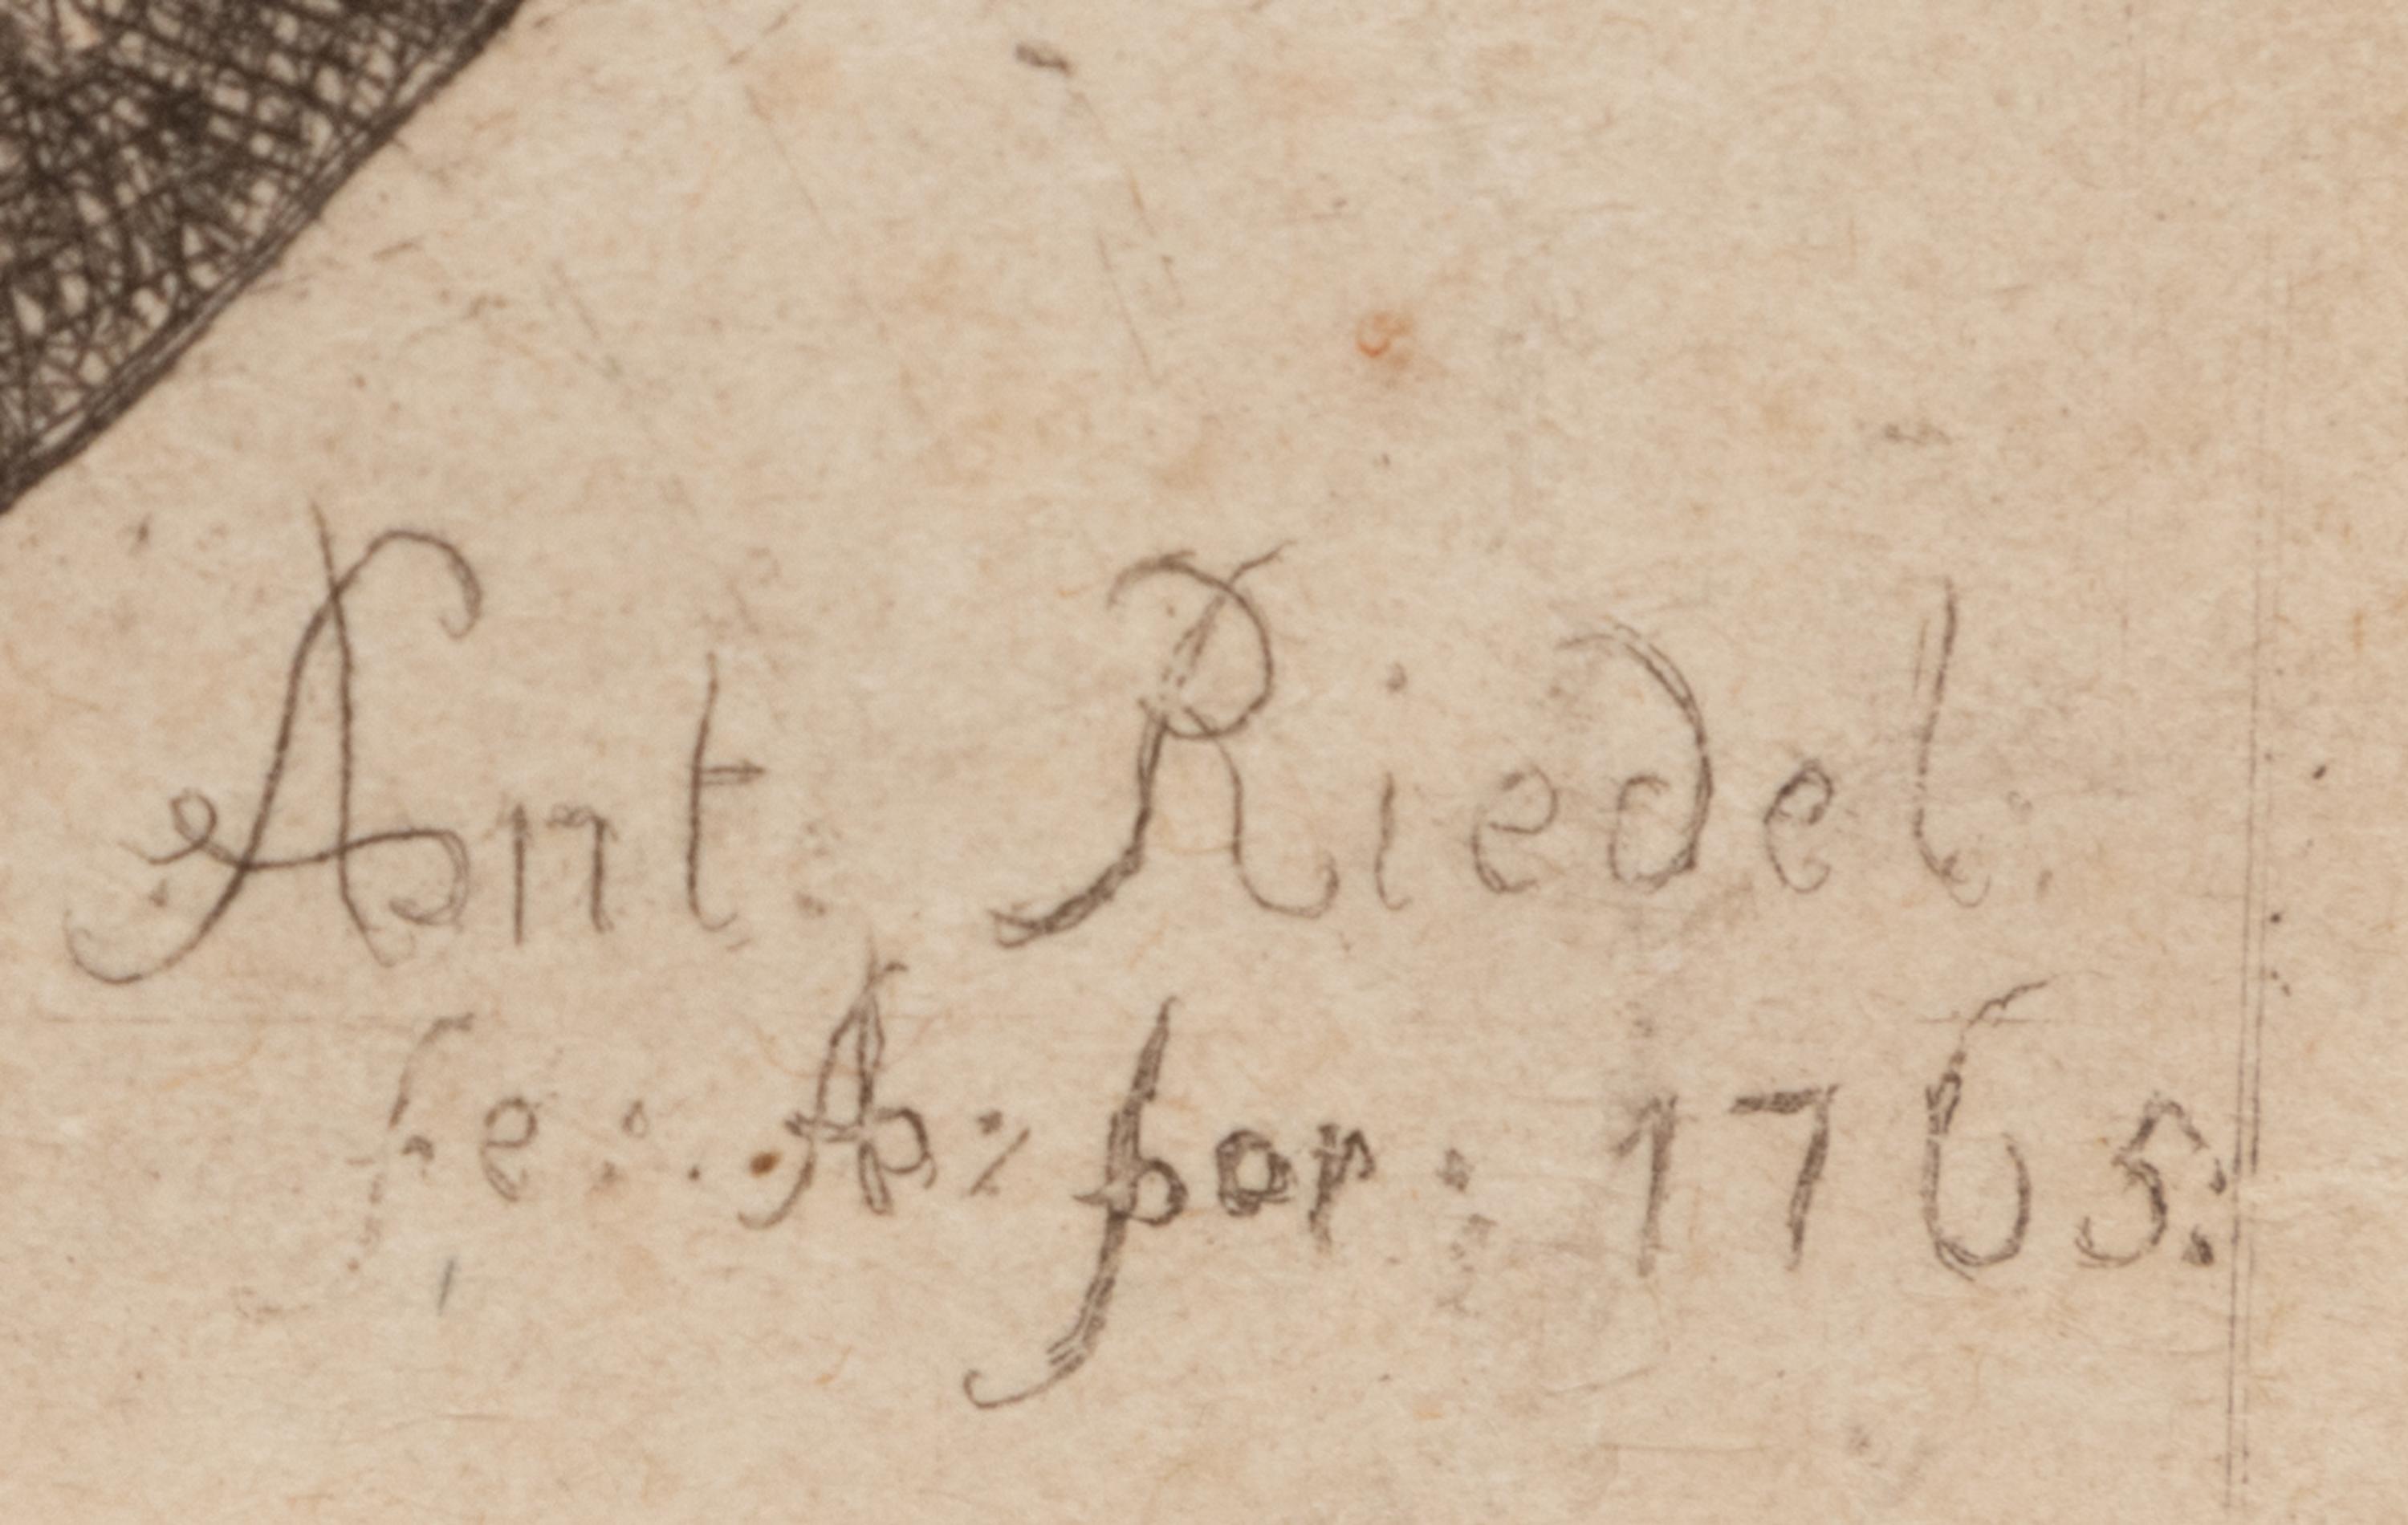 Ant. Riedel.
fe: A: for: 1765: